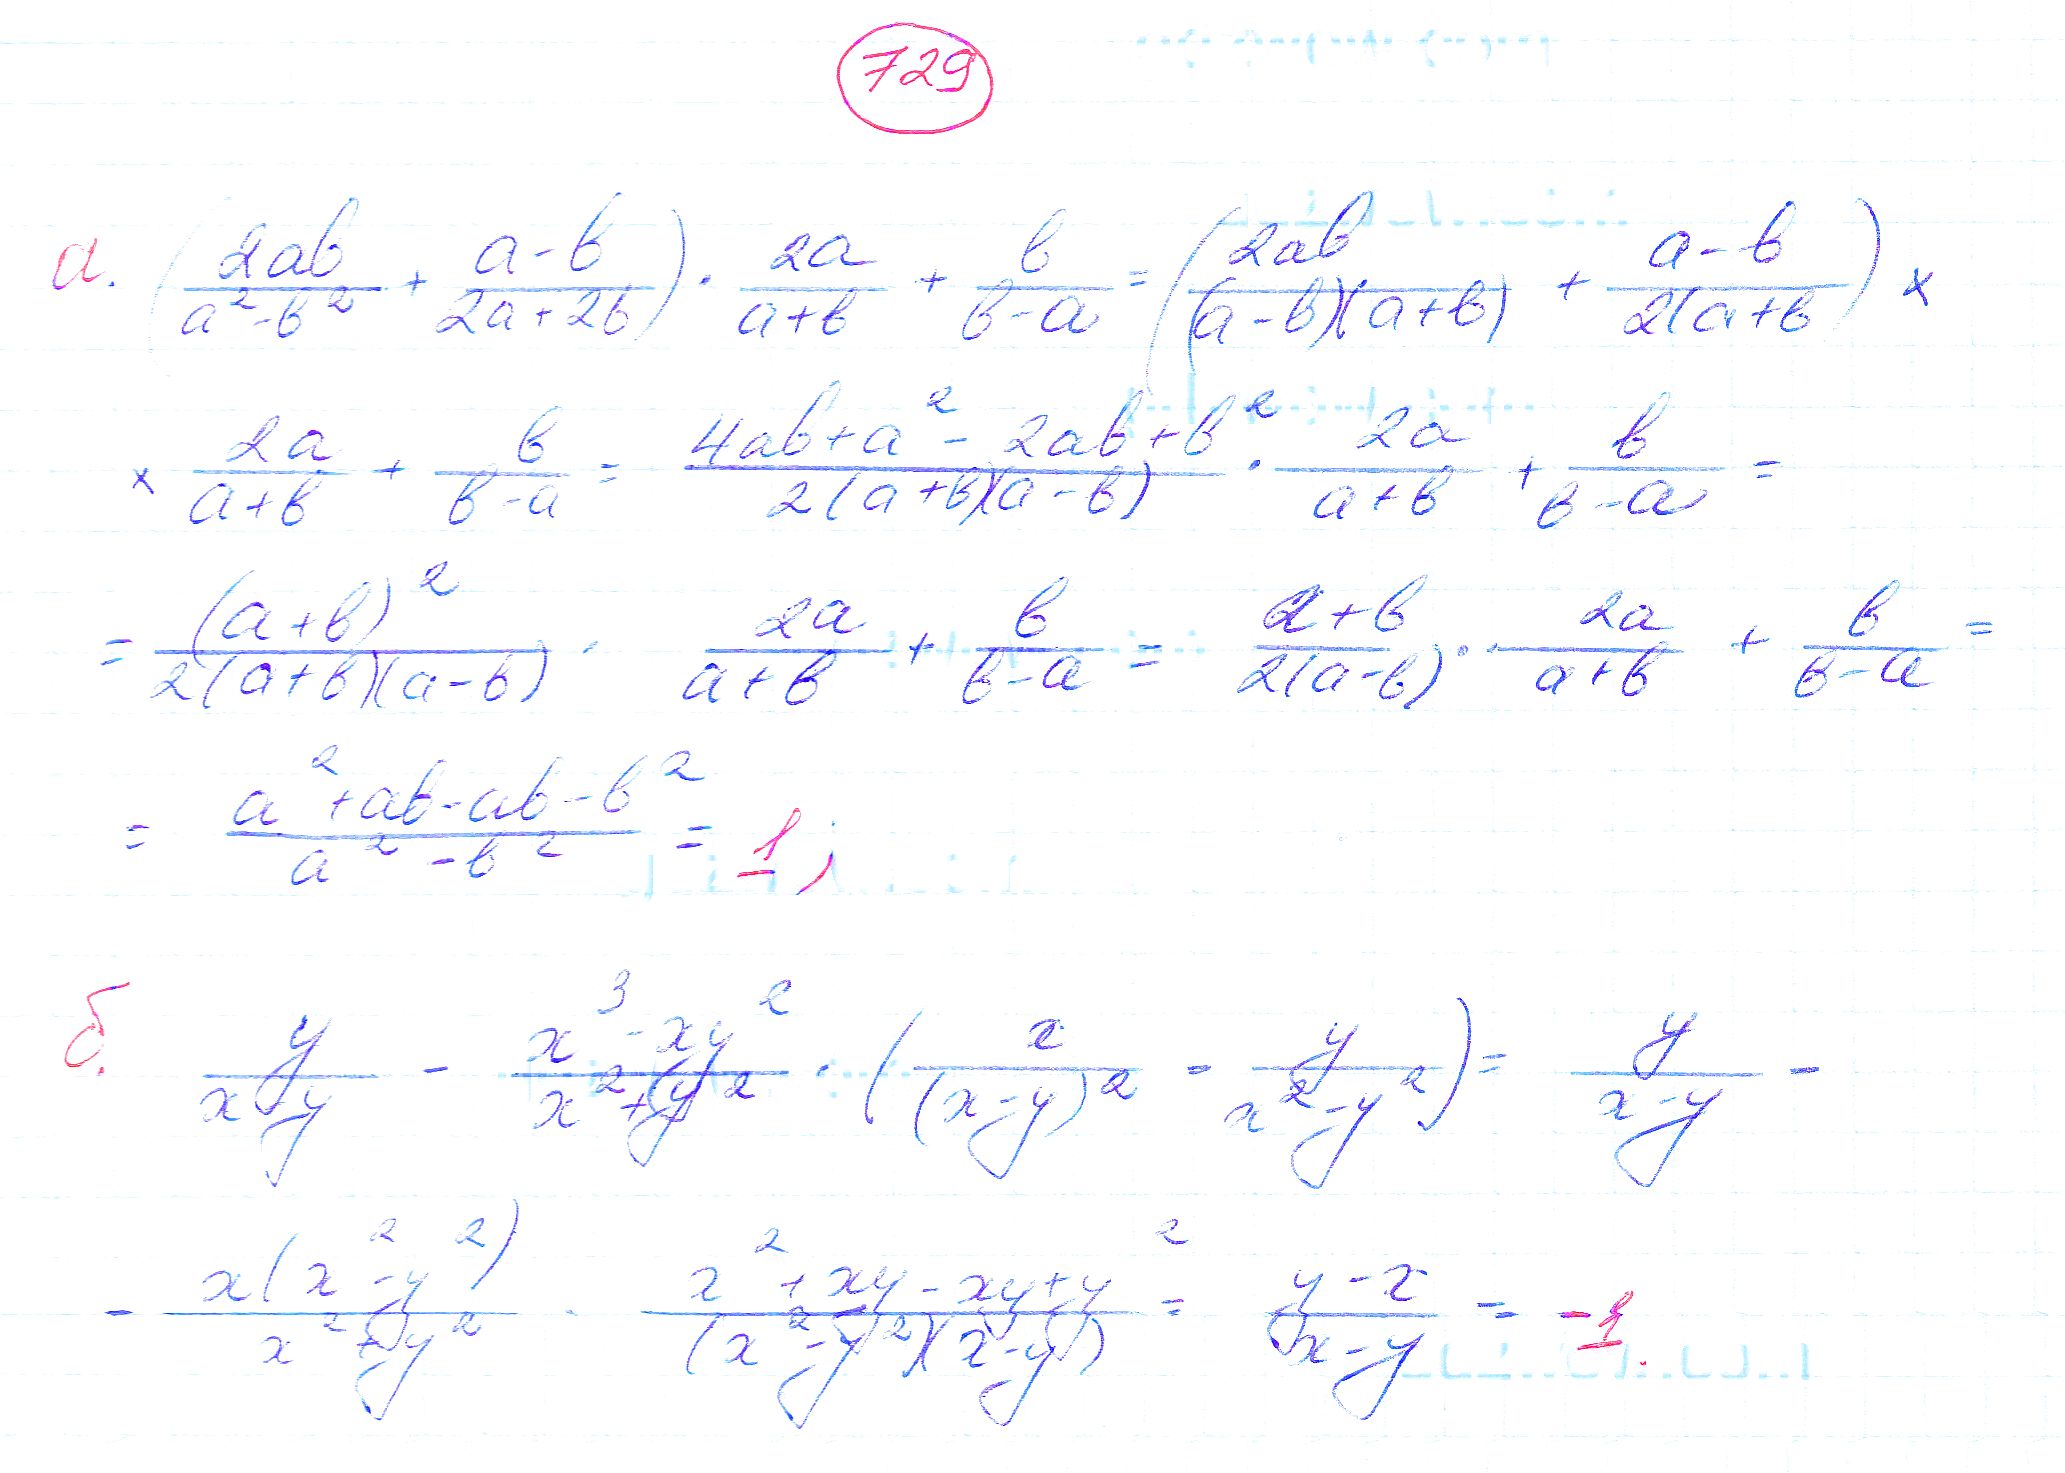 729
а. (2ab/(a²-b²) + (a-b)/(2a+2b)) · 2a/(a+b) + b/(b-a) = (2ab/((a-b)(a+b)) + (a-b)/(2(a+b)) ×
× 2a/(a+b) + b/(b-a) = (4ab+a²-2ab+b²)/(2(a+b)(a-b)) · 2a/(a+b) + b/(b-a) =
= (a+b)²/(2(a+b)(a-b)) · 2a/(a+b) + b/(b-a) = (a+b)/(2(a-b)) · 2a/(a+b) + b/(b-a) =
= (a²+ab-ab-b²)/(a²-b²) = 1;
б. y/(x-y) - (x³-xy²)/(x²+y²) · (x/(x-y)² - y/(x²-y²)) = y/(x-y) -
- x(x²-y²)/(x²+y²) · (x²+xy-xy+y²)/((x²-y²)(x-y)) = (y-x)/(x-y) = -1.